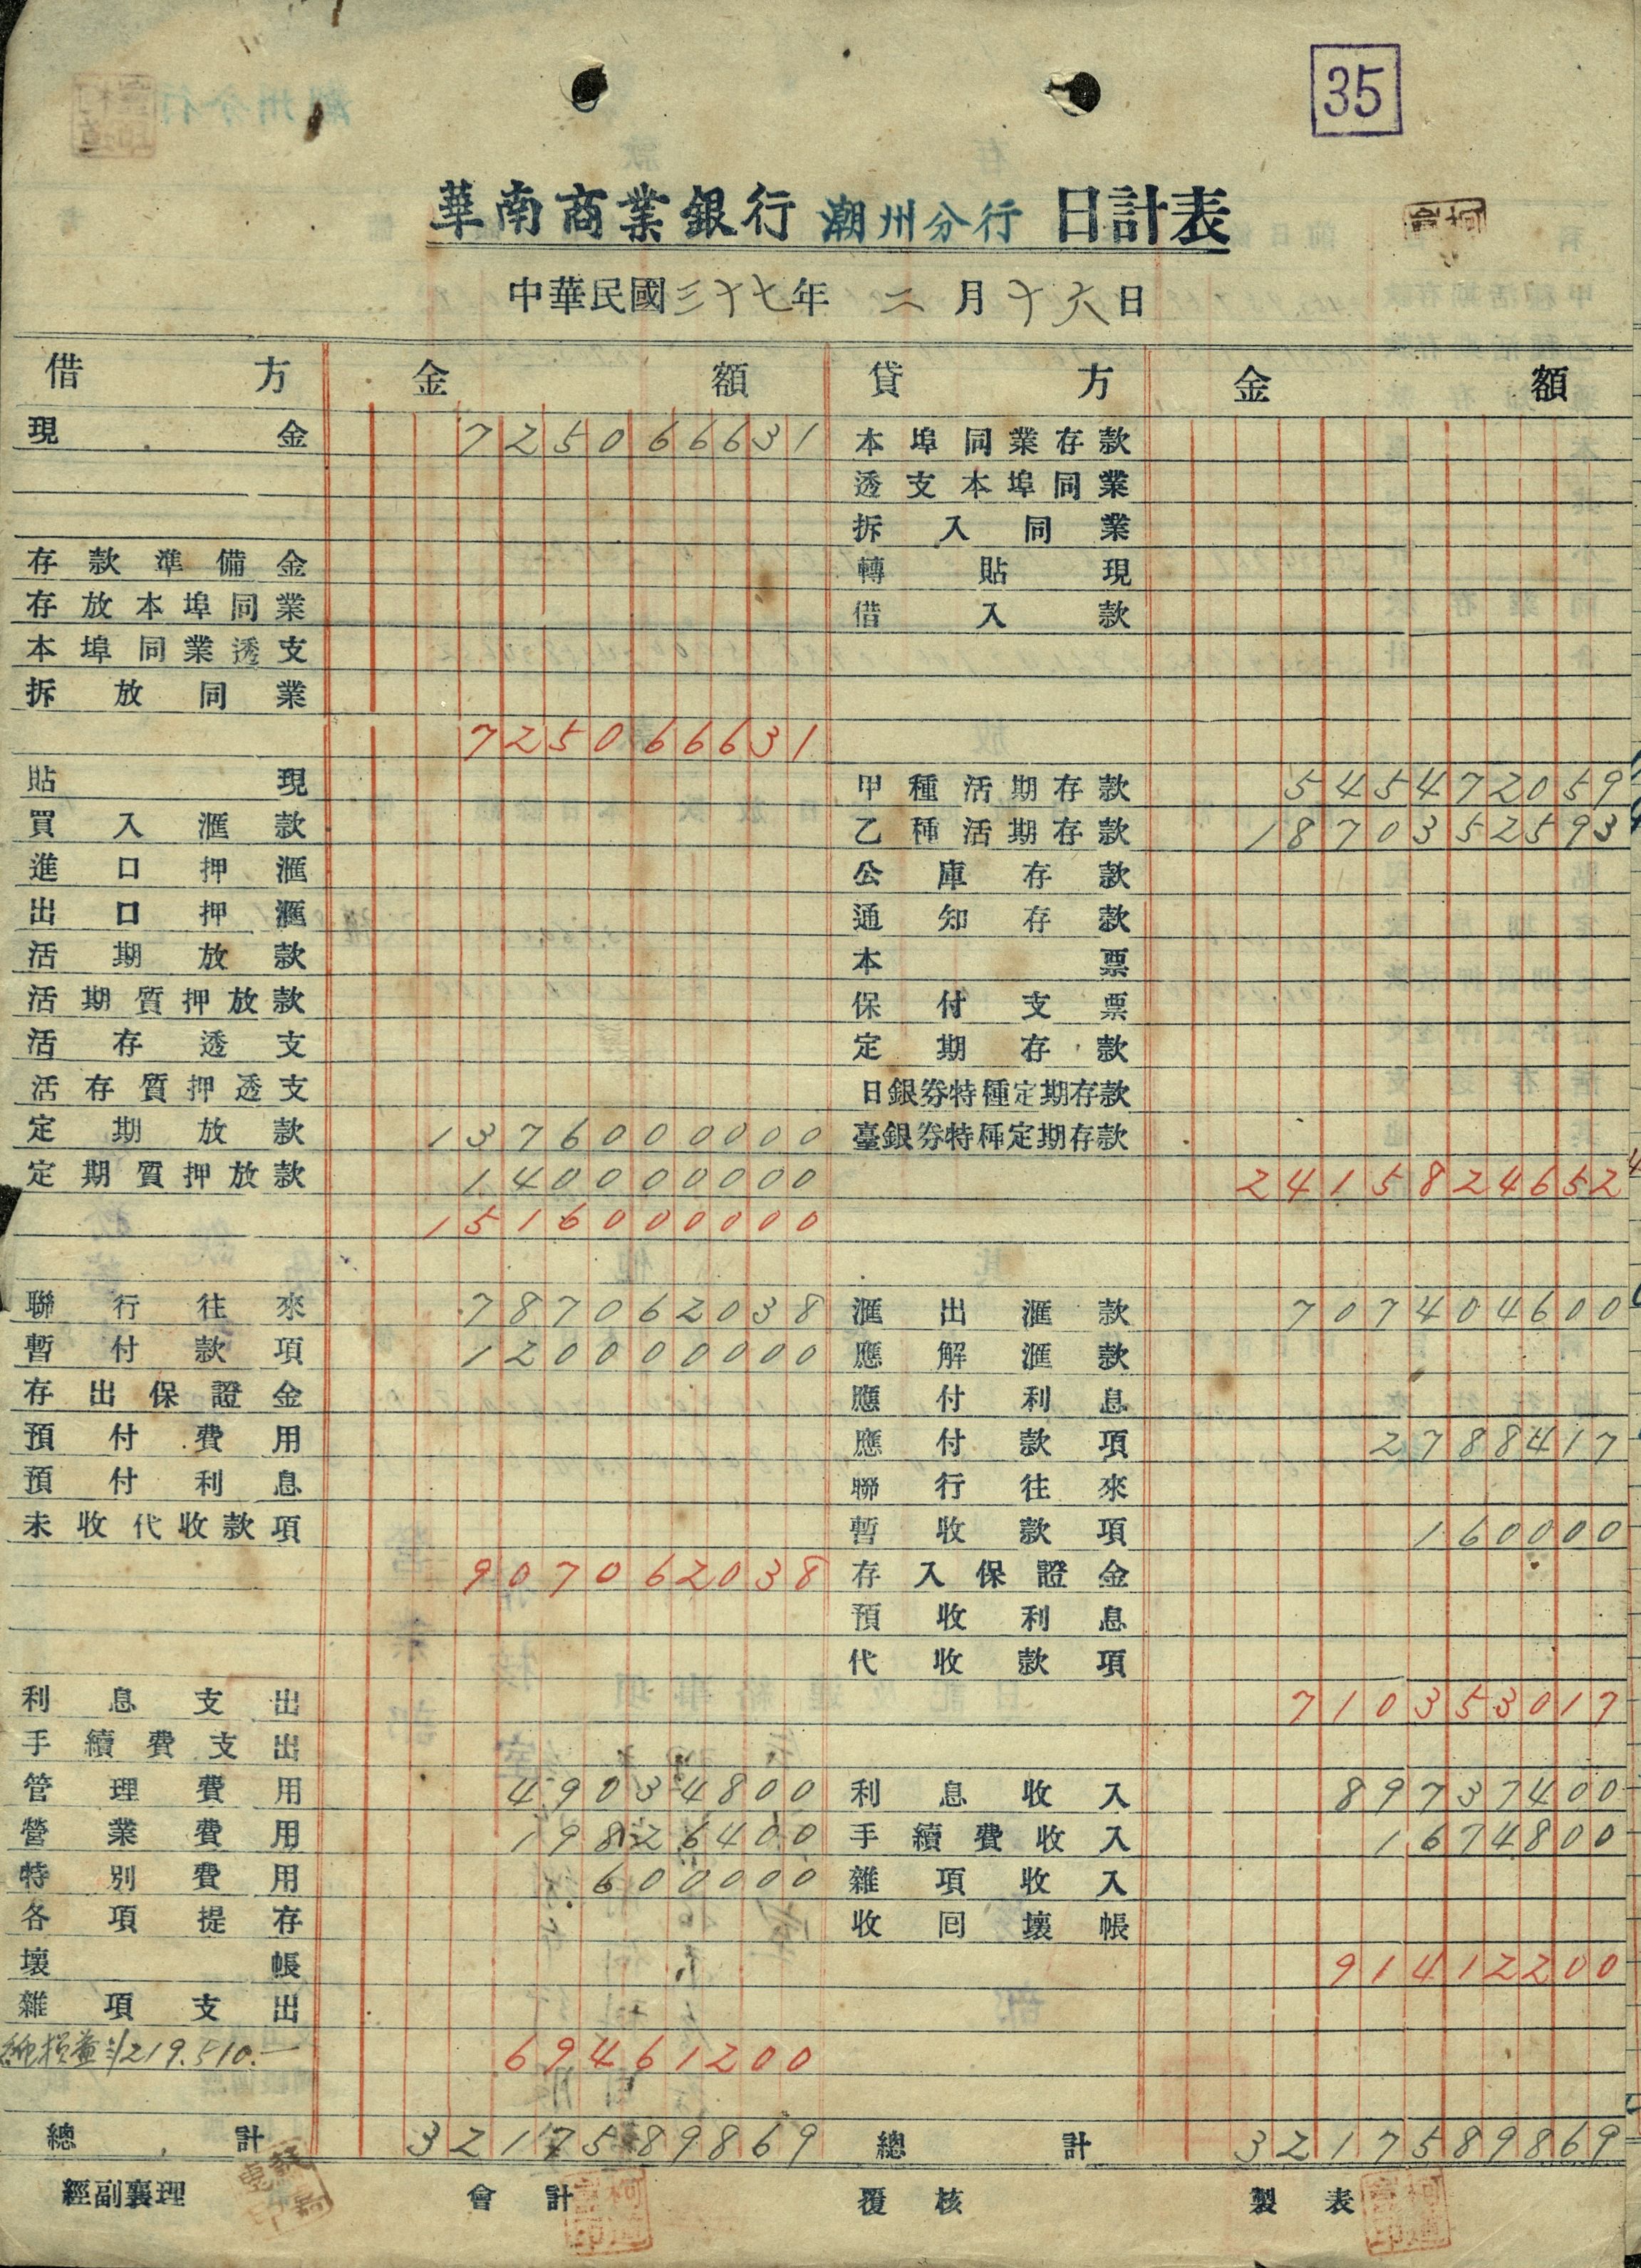 35
華南商業銀行 潮州分行 日計表
中華民國三十七年 二月十六日
借方 金額 貸方 金額
現金 725066631 本埠同業存款
透支本埠同業
拆入同業
存款準備金 轉貼現
存放本埠同業 借入款
本埠同業透支
拆放同業
725066631
貼現 甲種活期存款 545472059
買入滙款 乙種活期存款 1870352593
進口押滙 公庫存款
出口押滙 通知存款
活期放款 本票
活期質押放款 保付支票
活存透支 定期存款
活存質押透支 日銀券特種定期存款
定期放款 1376000000 臺銀券特種定期存款
定期質押放款 140000000 2415824652
1516000000
聯行往來 787062038 滙出滙款 707404600
暫付款項 120000000 應解滙款
存出保證金 應付利息
預付費用 應付款項 2788417
預付利息 聯行往來
未收代收款項 暫收款項 160000
907062038 存入保證金
預收利息
代收款項
利息支出 710353017
手續費支出
管理費用 49034800 利息收入 89737400
營業費用 19826400 手續費收入 1674800
特別費用 600000 雜項收入
各項提存 收回壞帳
壞帳 91412200
雜項支出
純損益 219.510.— 69461200
總計 3217589869 總計 3217589869
經副襄理 會計 覆核 製表